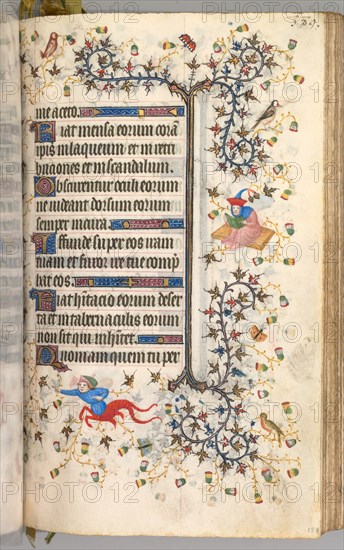 me aceto.
Fiat mensa eorum corā
ipīs in laqueum et in retri
buciones et in scandalum.
Obscurentur oculi eorum
ne uideant dorsum eorum
semper incurua.
Effunde super eos iram
tuam et furor ire tue comp̄
hat eos.
Fiat hītacio eorum deser
ta et in tabernaculis eorum
non sit qui inh̄itet.
Quoniam quem tu per